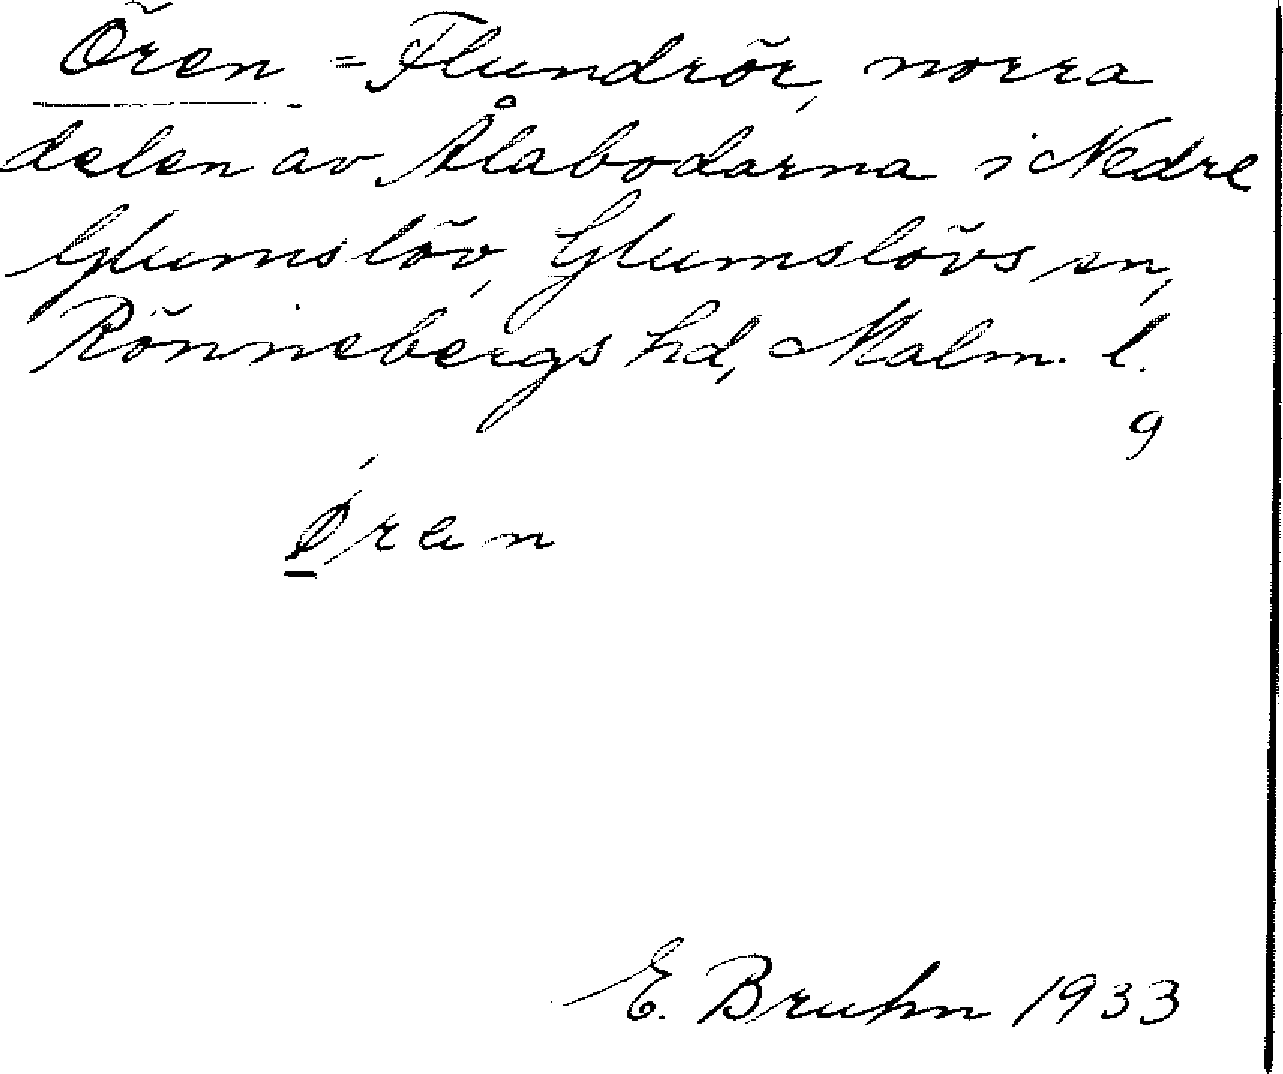 Ören = Flundrör, norra
delen av Ålabodarna i Nedre
Glumslöv, Glumslövs sn,
Rönnebergs hd, Malm. l.
9
E. Bruhn 1933